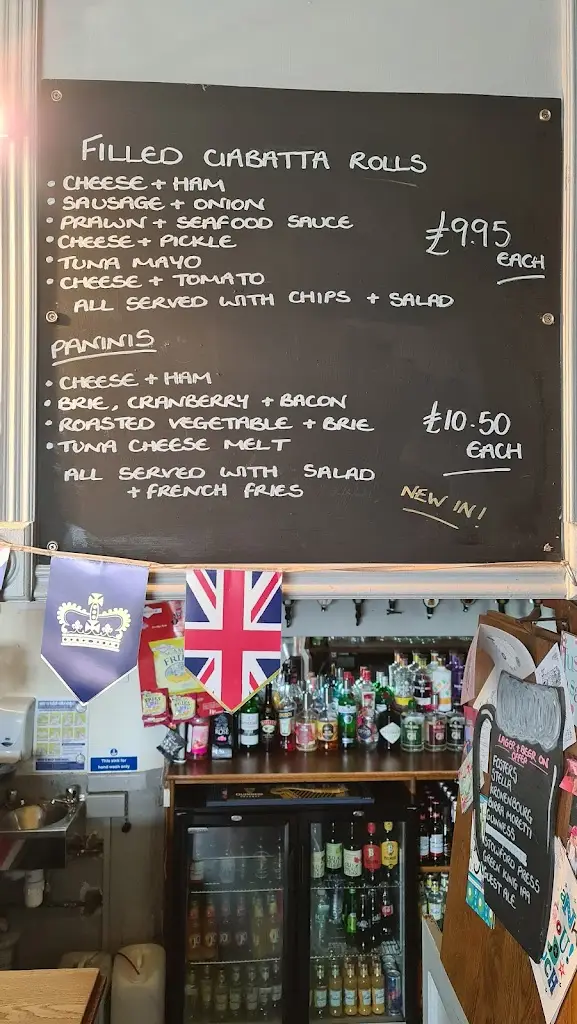 FILLED CIABATTA ROLLS
• CHEESE + HAM
• SAUSAGE + ONION
• PRAWN + SEAFOOD SAUCE
• CHEESE + PICKLE
• TUNA MAYO
• CHEESE + TOMATO
£9.95
EACH
ALL SERVED WITH CHIPS + SALAD
PANINIS
• CHEESE + HAM
• BRIE, CRANBERRY + BACON
• ROASTED VEGETABLE + BRIE
• TUNA CHEESE MELT
£10.50
EACH
ALL SERVED WITH SALAD
+ FRENCH FRIES
NEW IN!
This sink for
hand wash only
LAGER + BEER ON
OFFER
FOSTERS
STELLA
KRONENBOURG
BIRRA MORETTI
GUINNESS
STOWFORD PRESS
GREEN KING IPA
GUEST ALE